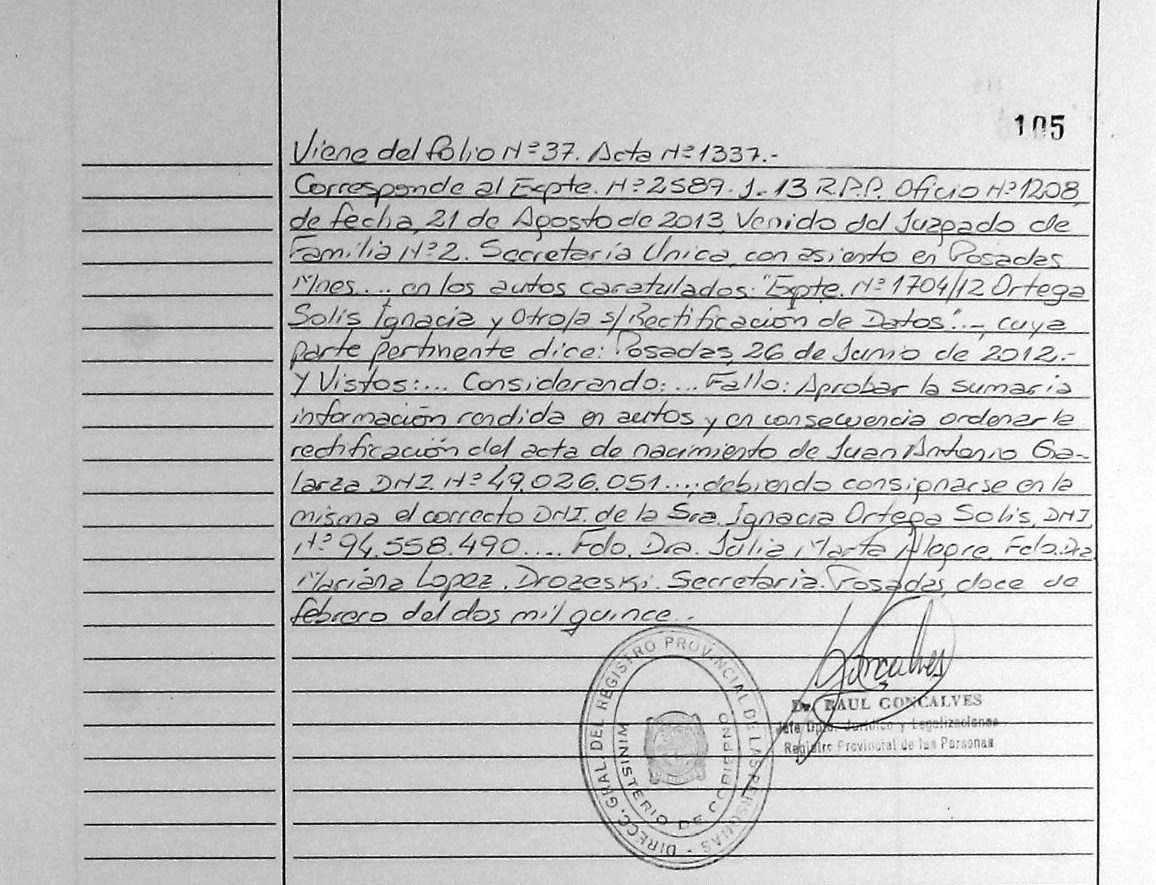 105
Viene del folio Nº 37. Acta Nº 1337.-
Corresponde al Expte. Nº 2589. J-13 R.P.P. Oficio Nº 1208,
de fecha, 21 de Agosto de 2013, Venido del Juzgado de
Familia Nº 2. Secretaría Unica, con asiento en Posadas
Mnes.... en los autos caratulados: "Expte. Nº 1704/12 Ortega
Solis Ignacia y Otro/a s/Rectificación de Datos".-, cuya
parte pertinente dice: Posadas, 26 de Junio de 2012.-
Y Vistos:... Considerando:... Fallo: Aprobar la sumaria
información rendida en autos y en consecuencia ordenar la
rectificación del acta de nacimiento de Juan Antonio Ga-
larza DNI. Nº 49.026.051...; debiendo consignarse en la
misma el correcto DNI. de la Sra. Ignacia Ortega Solis, DNI
Nº 94.558.490.... Fdo. Dra. Julia Marta Alegre. Fdo. Dra.
Mariana Lopez. Drozeski. Secretaria. Posadas, doce de
febrero del dos mil quince.-
Goncalves
Dr. RAUL GONCALVES
Jefe Dpto. Jurídico y Legalizaciones
Registro Provincial de las Personas
DIRECC. GRAL. DEL REGISTRO PROVINCIAL DE LAS PERSONAS -
MINISTERIO DE GOBIERNO